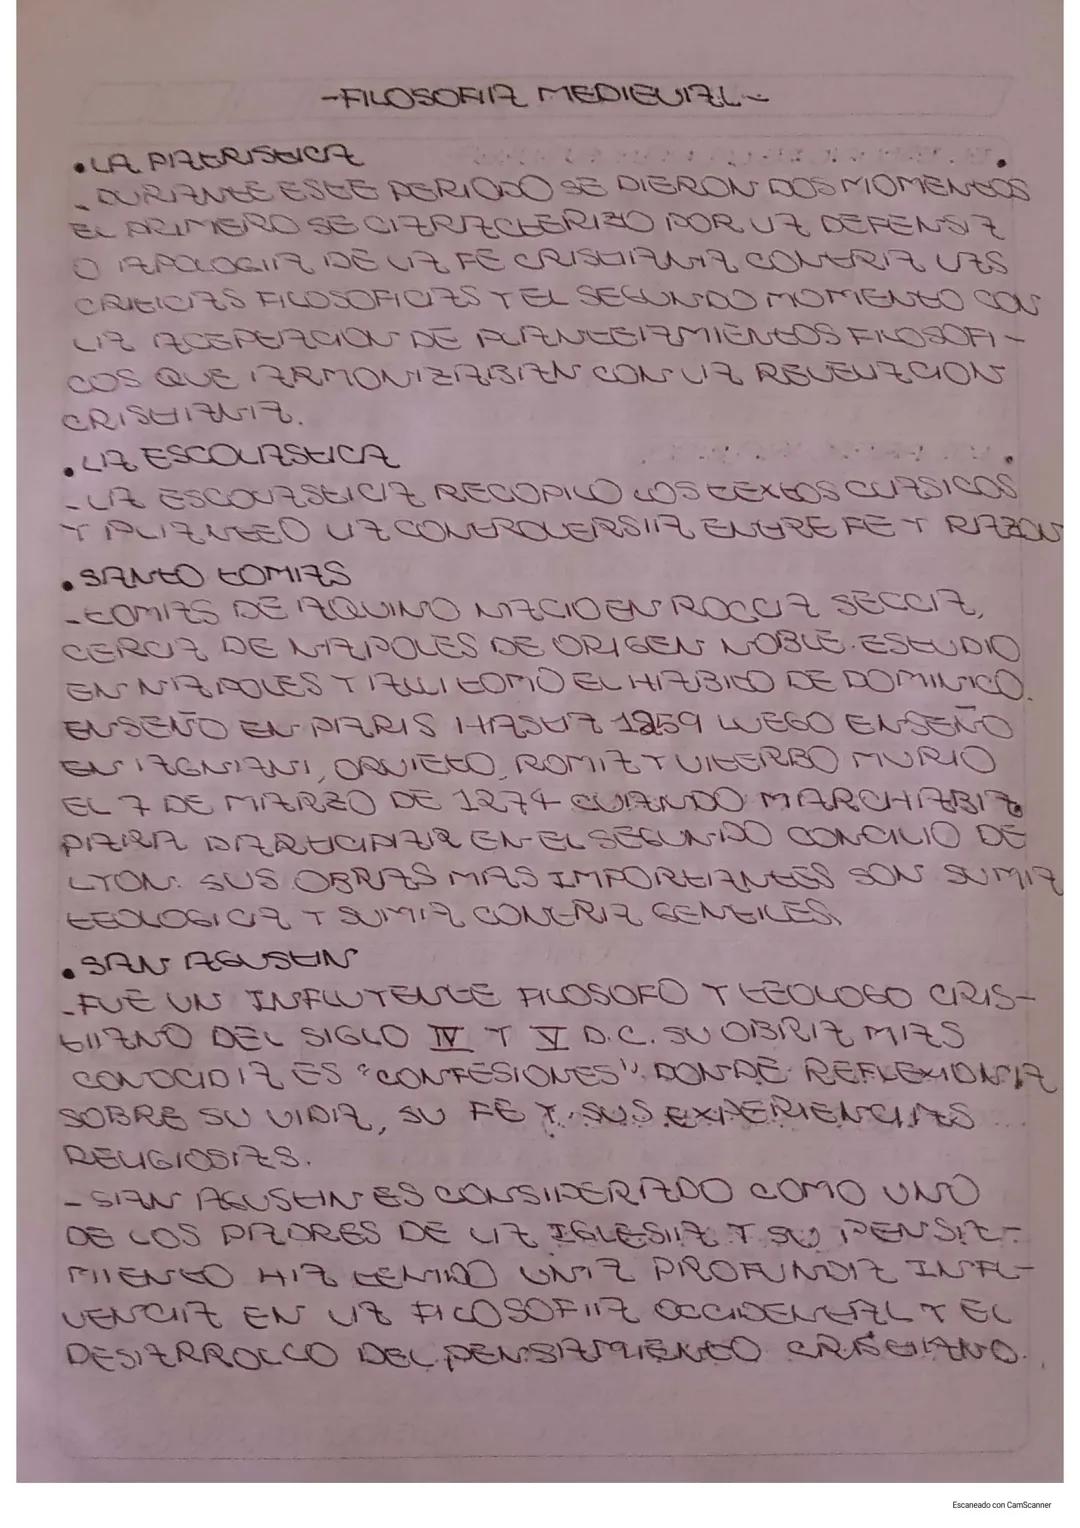 -FILOSOFIA MEDIEVAL-
• LA PATRISTICA
- DURANTE ESTE PERIODO SE DIERON DOS MOMENTOS
EL PRIMERO SE CARACTERIZO POR LA DEFENSA
O APOLOGIA DE LA FE CRISTIANA CONTRA LAS
CRITICAS FILOSOFICAS Y EL SEGUNDO MOMENTO CON
LA ACEPTACION DE PLANTEAMIENTOS FILOSOFI-
COS QUE ARMONIZABAN CON LA REVELACION
CRISTIANA.
• LA ESCOLASTICA
- LA ESCOLASTICA RECOPILO LOS TEXTOS CLASICOS
Y PLANTEO LA CONTROVERSIA ENTRE FE Y RAZON
• SANTO TOMAS
- TOMAS DE AQUINO NACIO EN ROCCA SECCA,
CERCA DE NAPOLES DE ORIGEN NOBLE. ESTUDIO
EN NAPOLES Y ALLI TOMO EL HABITO DE DOMINICO.
ENSEÑO EN PARIS HASTA 1259 LUEGO ENSEÑO
EN AGNANI, ORVIETO, ROMA Y VITERBO MURIO
EL 7 DE MARZO DE 1274 CUANDO MARCHABA
PARA PARTICIPAR EN EL SEGUNDO CONCILIO DE
LYON. SUS OBRAS MAS IMPORTANTES SON SUMA
TEOLOGICA Y SUMA CONTRA GENTILES.
• SAN AGUSTIN
- FUE UN INFLUYENTE FILOSOFO Y TEOLOGO CRIS-
TIANO DEL SIGLO IV Y V D.C. SU OBRA MAS
CONOCIDA ES "CONFESIONES", DONDE REFLEXIONA
SOBRE SU VIDA, SU FE Y SUS EXPERIENCIAS
RELIGIOSAS.
- SAN AGUSTIN ES CONSIDERADO COMO UNO
DE LOS PADRES DE LA IGLESIA Y SU PENSA-
MIENTO HA TENIDO UNA PROFUNDA INFL-
UENCIA EN LA FILOSOFIA OCCIDENTAL Y EL
DESARROLLO DEL PENSAMIENTO CRISTIANO.
Escaneado con CamScanner